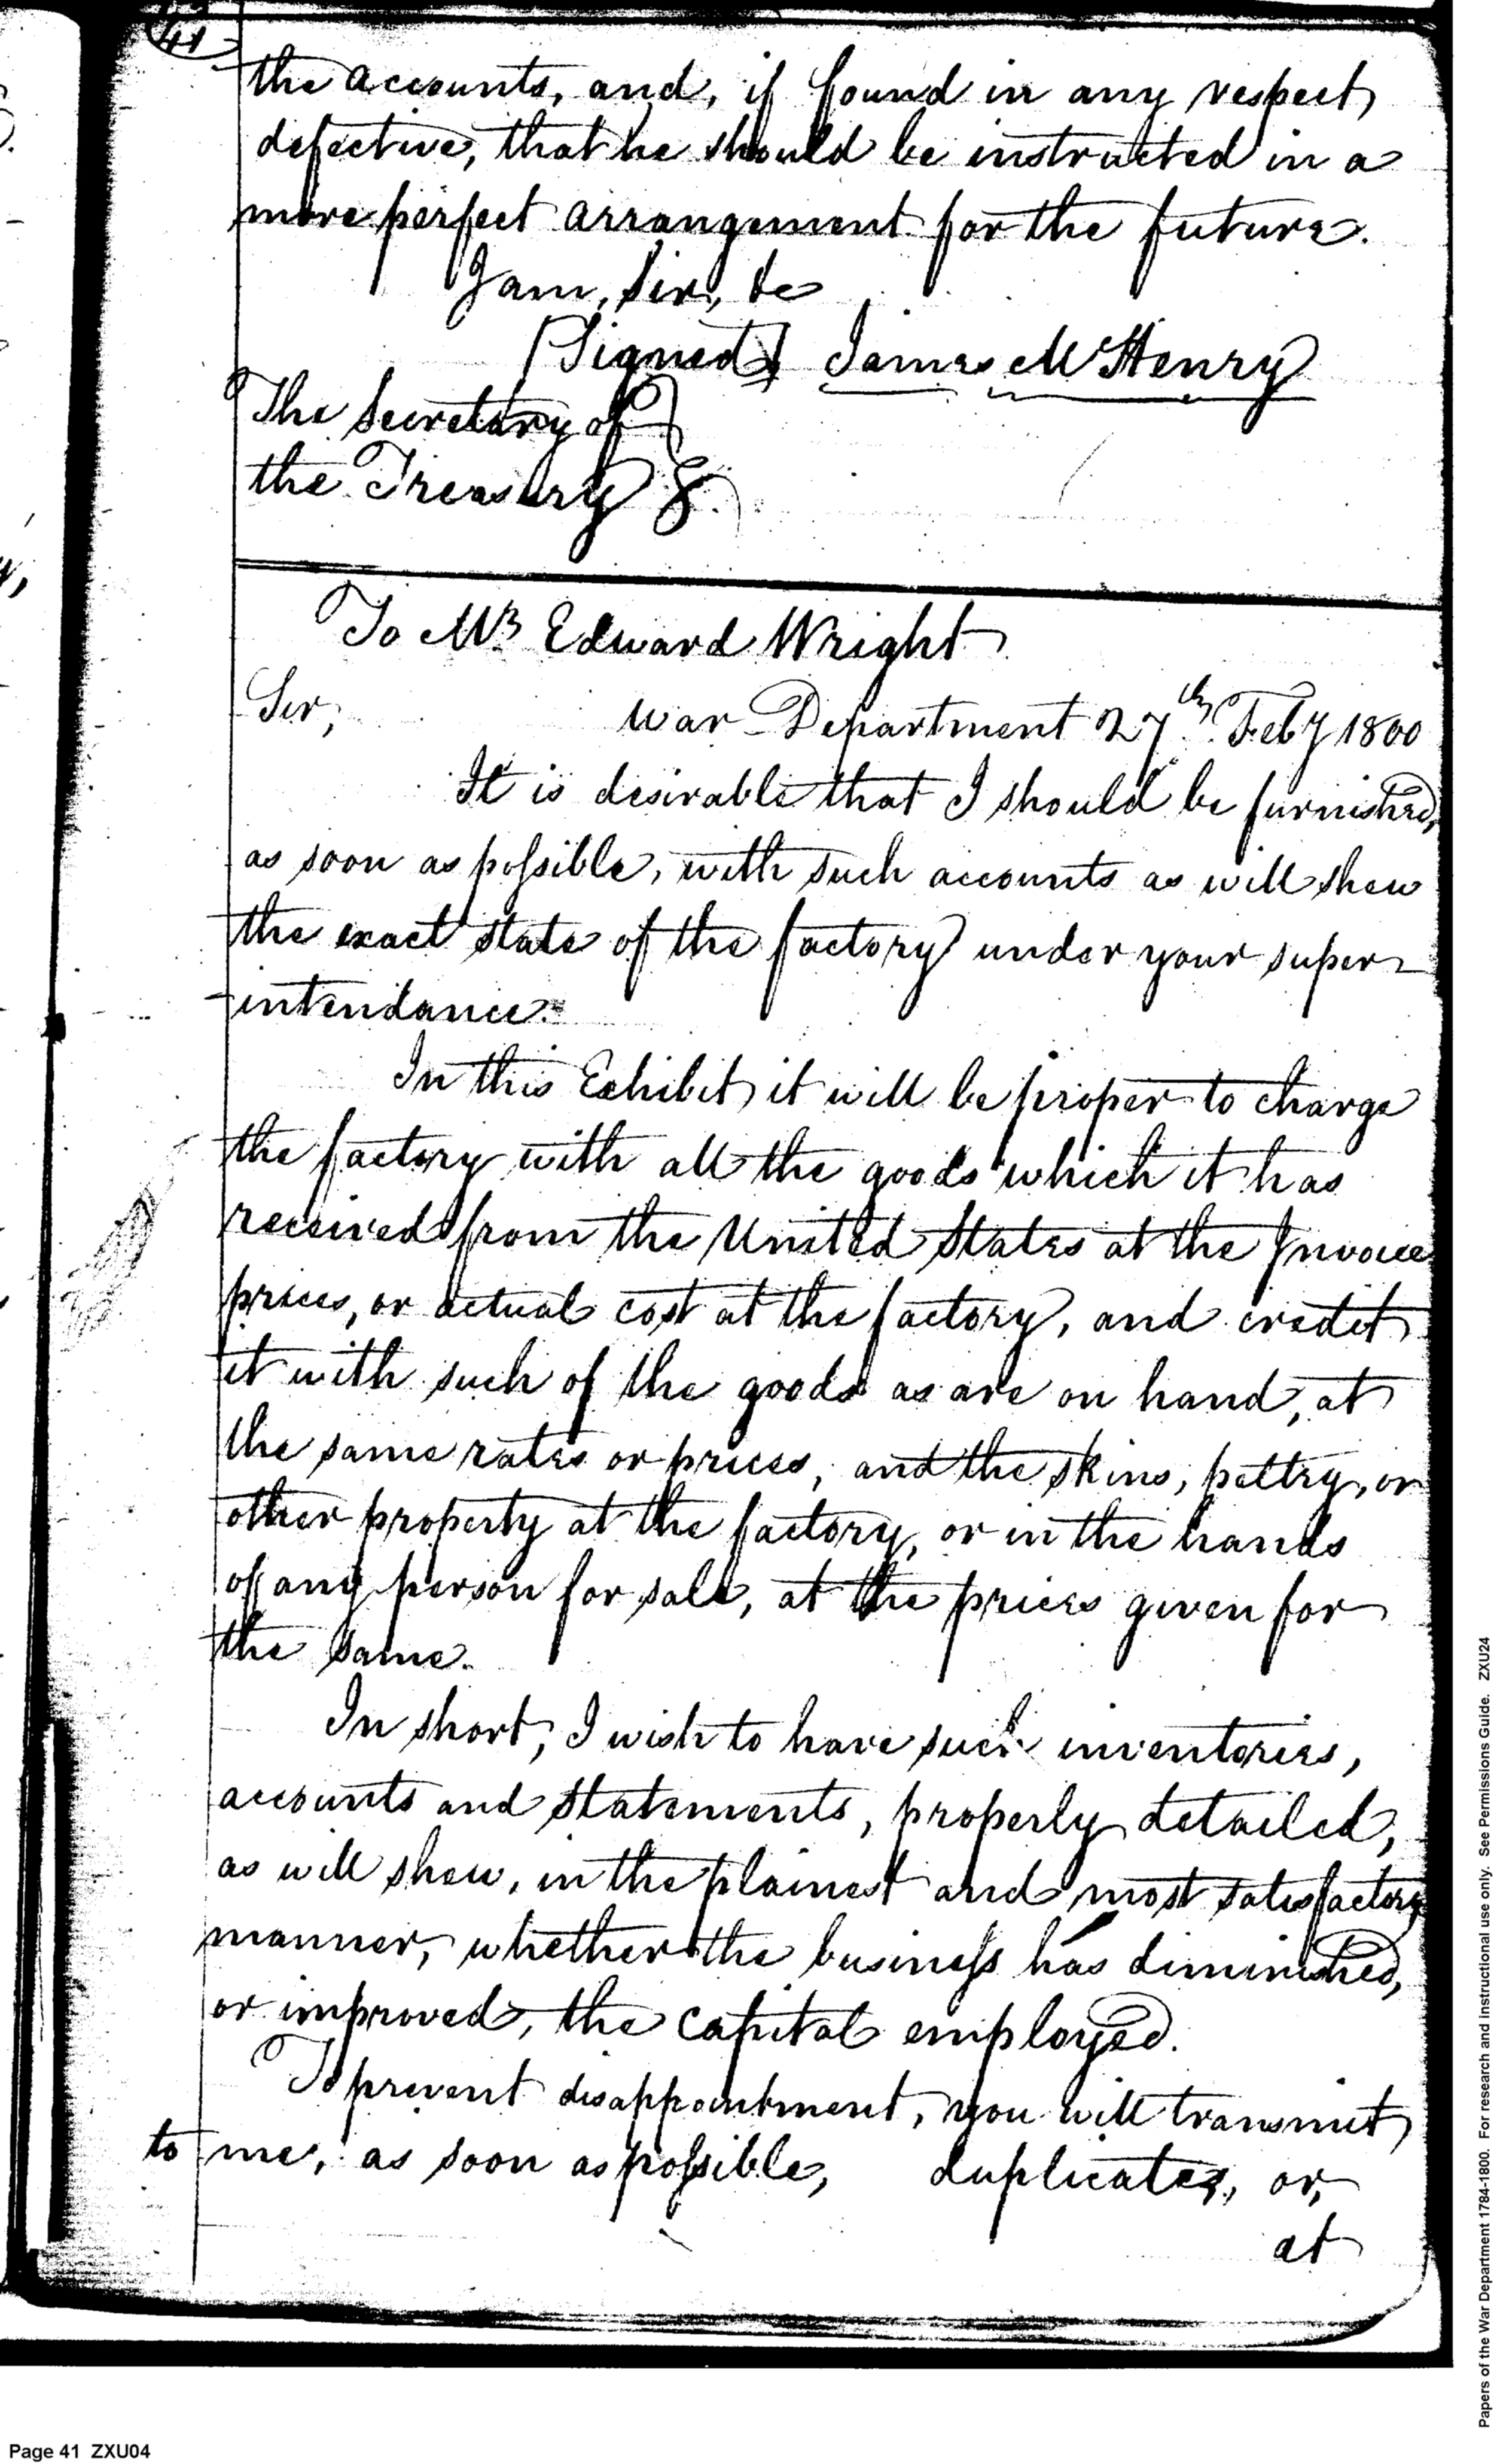 41
the accounts, and, if found in any respect
defective, that he should be instructed in a
more perfect arrangement for the future.
I am, Sir, &c
(Signed) James McHenry
The Secretary of
the Treasury
To Mr Edward Wright
Sir,
War Department 27th Feby 1800
It is desirable that I should be furnished,
as soon as possible, with such accounts as will shew
the exact state of the factory under your super-
-intendance.
In this Exhibit, it will be proper to charge
the factory with all the goods which it has
received from the United States at the Invoice
prices, or actual cost at the factory, and credit
it with such of the goods as are on hand, at
the same rates or prices, and the skins, peltry, or
other property at the factory, or in the hands
of any person for sale, at the prices given for
the same.
In short, I wish to have such inventories,
accounts and statements, properly detailed,
as will shew, in the plainest and most satisfactory
manner, whether the business has diminished,
or improved, the capital employed.
To prevent disappointment, you will transmit
to me, as soon as possible, duplicates, or,
at
Page 41 ZXU04
Papers of the War Department 1784-1800. For research and instructional use only. See Permissions Guide. ZXU24